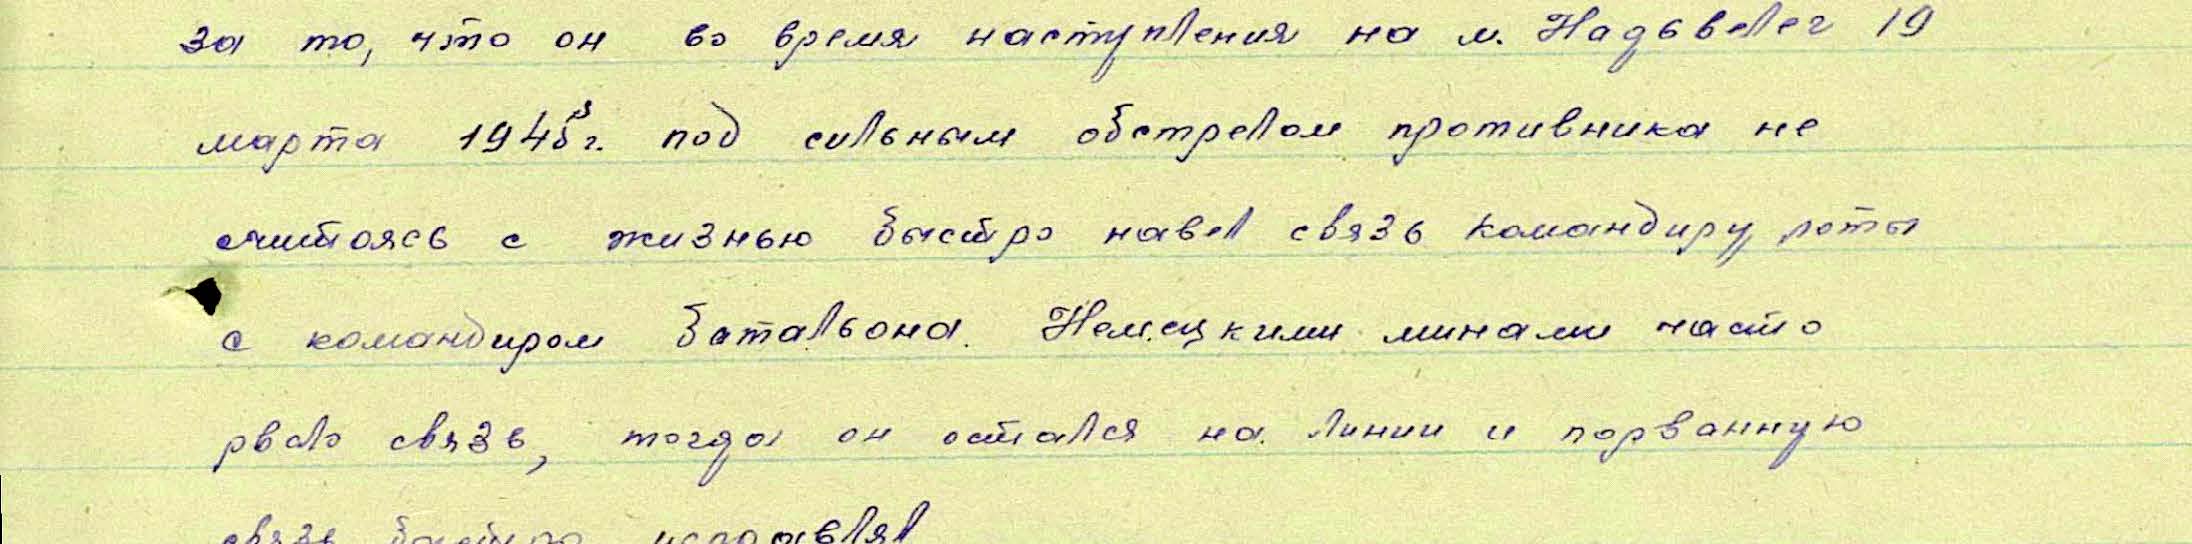 За то, что он во время наступления на м. Надьвелег 19
марта 1945 г. под сильным обстрелом противника не
считаясь с жизнью быстро навел связь командиру роты
с командиром батальона. Немецкими минами часто
рвало связь, тогда он остался на линии и порванную
связь быстро исправлял